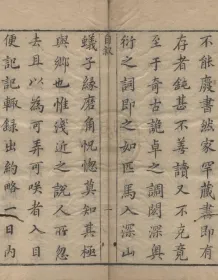 不能廢書然家罕藏書即有
存者鈍甚不善讀又不克竟
至于奇古詭卓之調閎深奧
衍之詞即之如匹馬入深山
自敘
一
蟻子緣磨角恍惚莫知其極
與鄉也惟淺近之說人所忽
去且以為可弄可咲者入目
便記記輒錄出約略一日內